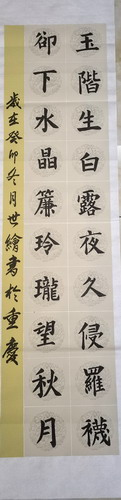 玉階生白露夜久侵羅襪
卻下水晶簾玲瓏望秋月
歲在癸卯冬月世繪書於重慶